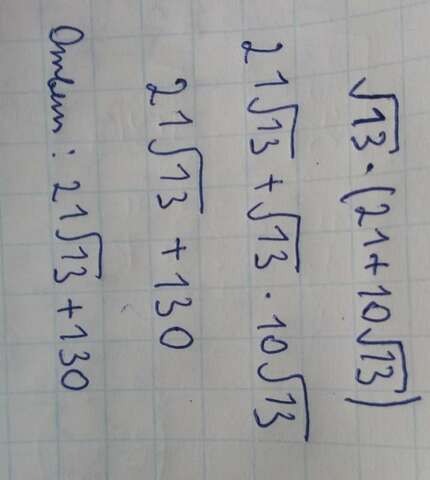 √13 · (21 + 10√13)
21√13 + √13 · 10√13
21√13 + 130
Ответ: 21√13 + 130